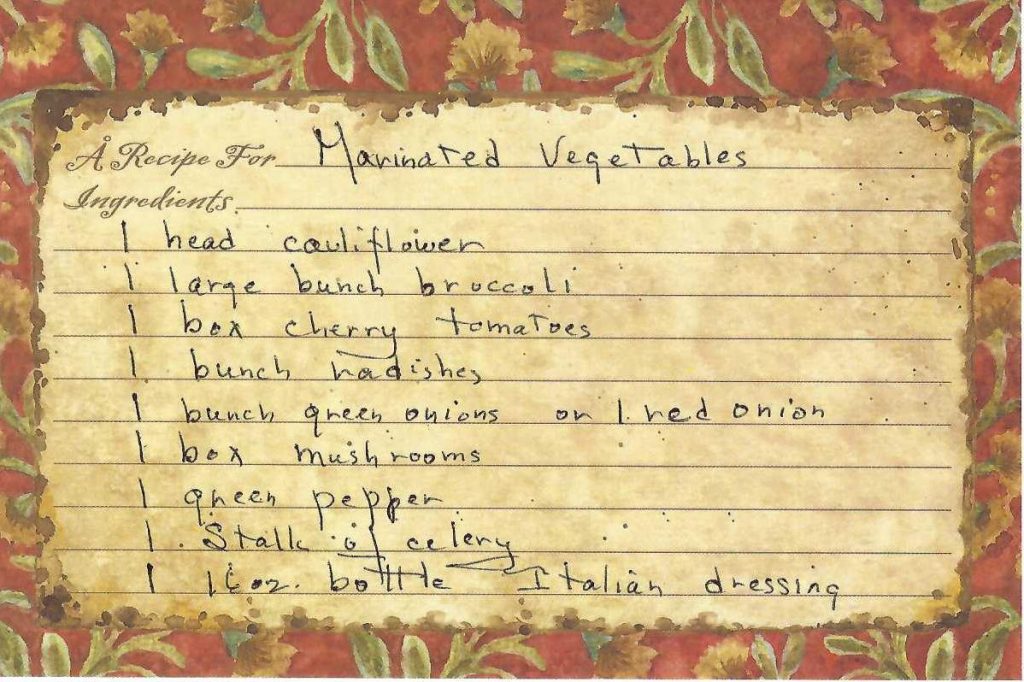 A Recipe For Marinated Vegetables
Ingredients
1 head cauliflower
1 large bunch broccoli
1 box cherry tomatoes
1 bunch radishes
1 bunch green onions or 1 red onion
1 box mushrooms
1 green pepper
1 Stalk of celery
1 16 oz. bottle Italian dressing